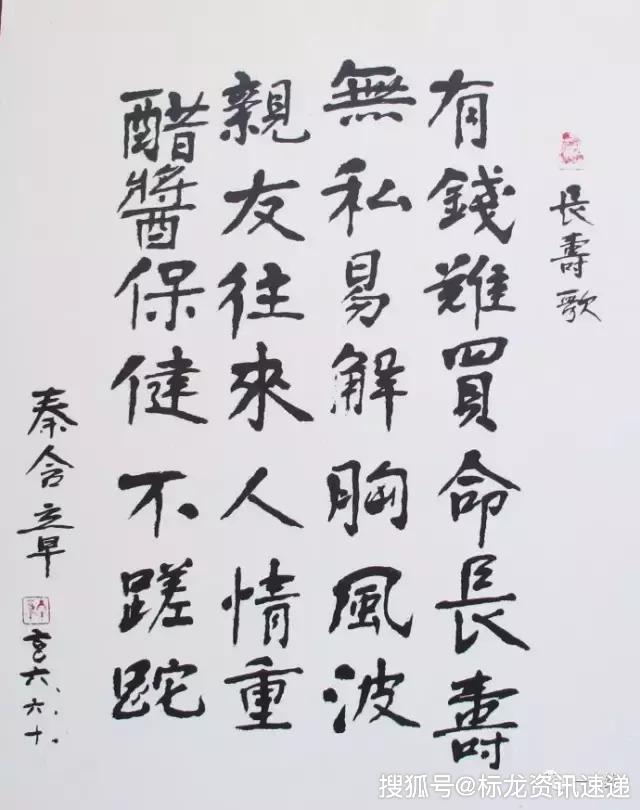 長壽歌
有錢難買命長壽
無私易解胸風波
親友往來人情重
醋醬保健不蹉跎
六.六.十.
搜狐号@标龙资讯速递